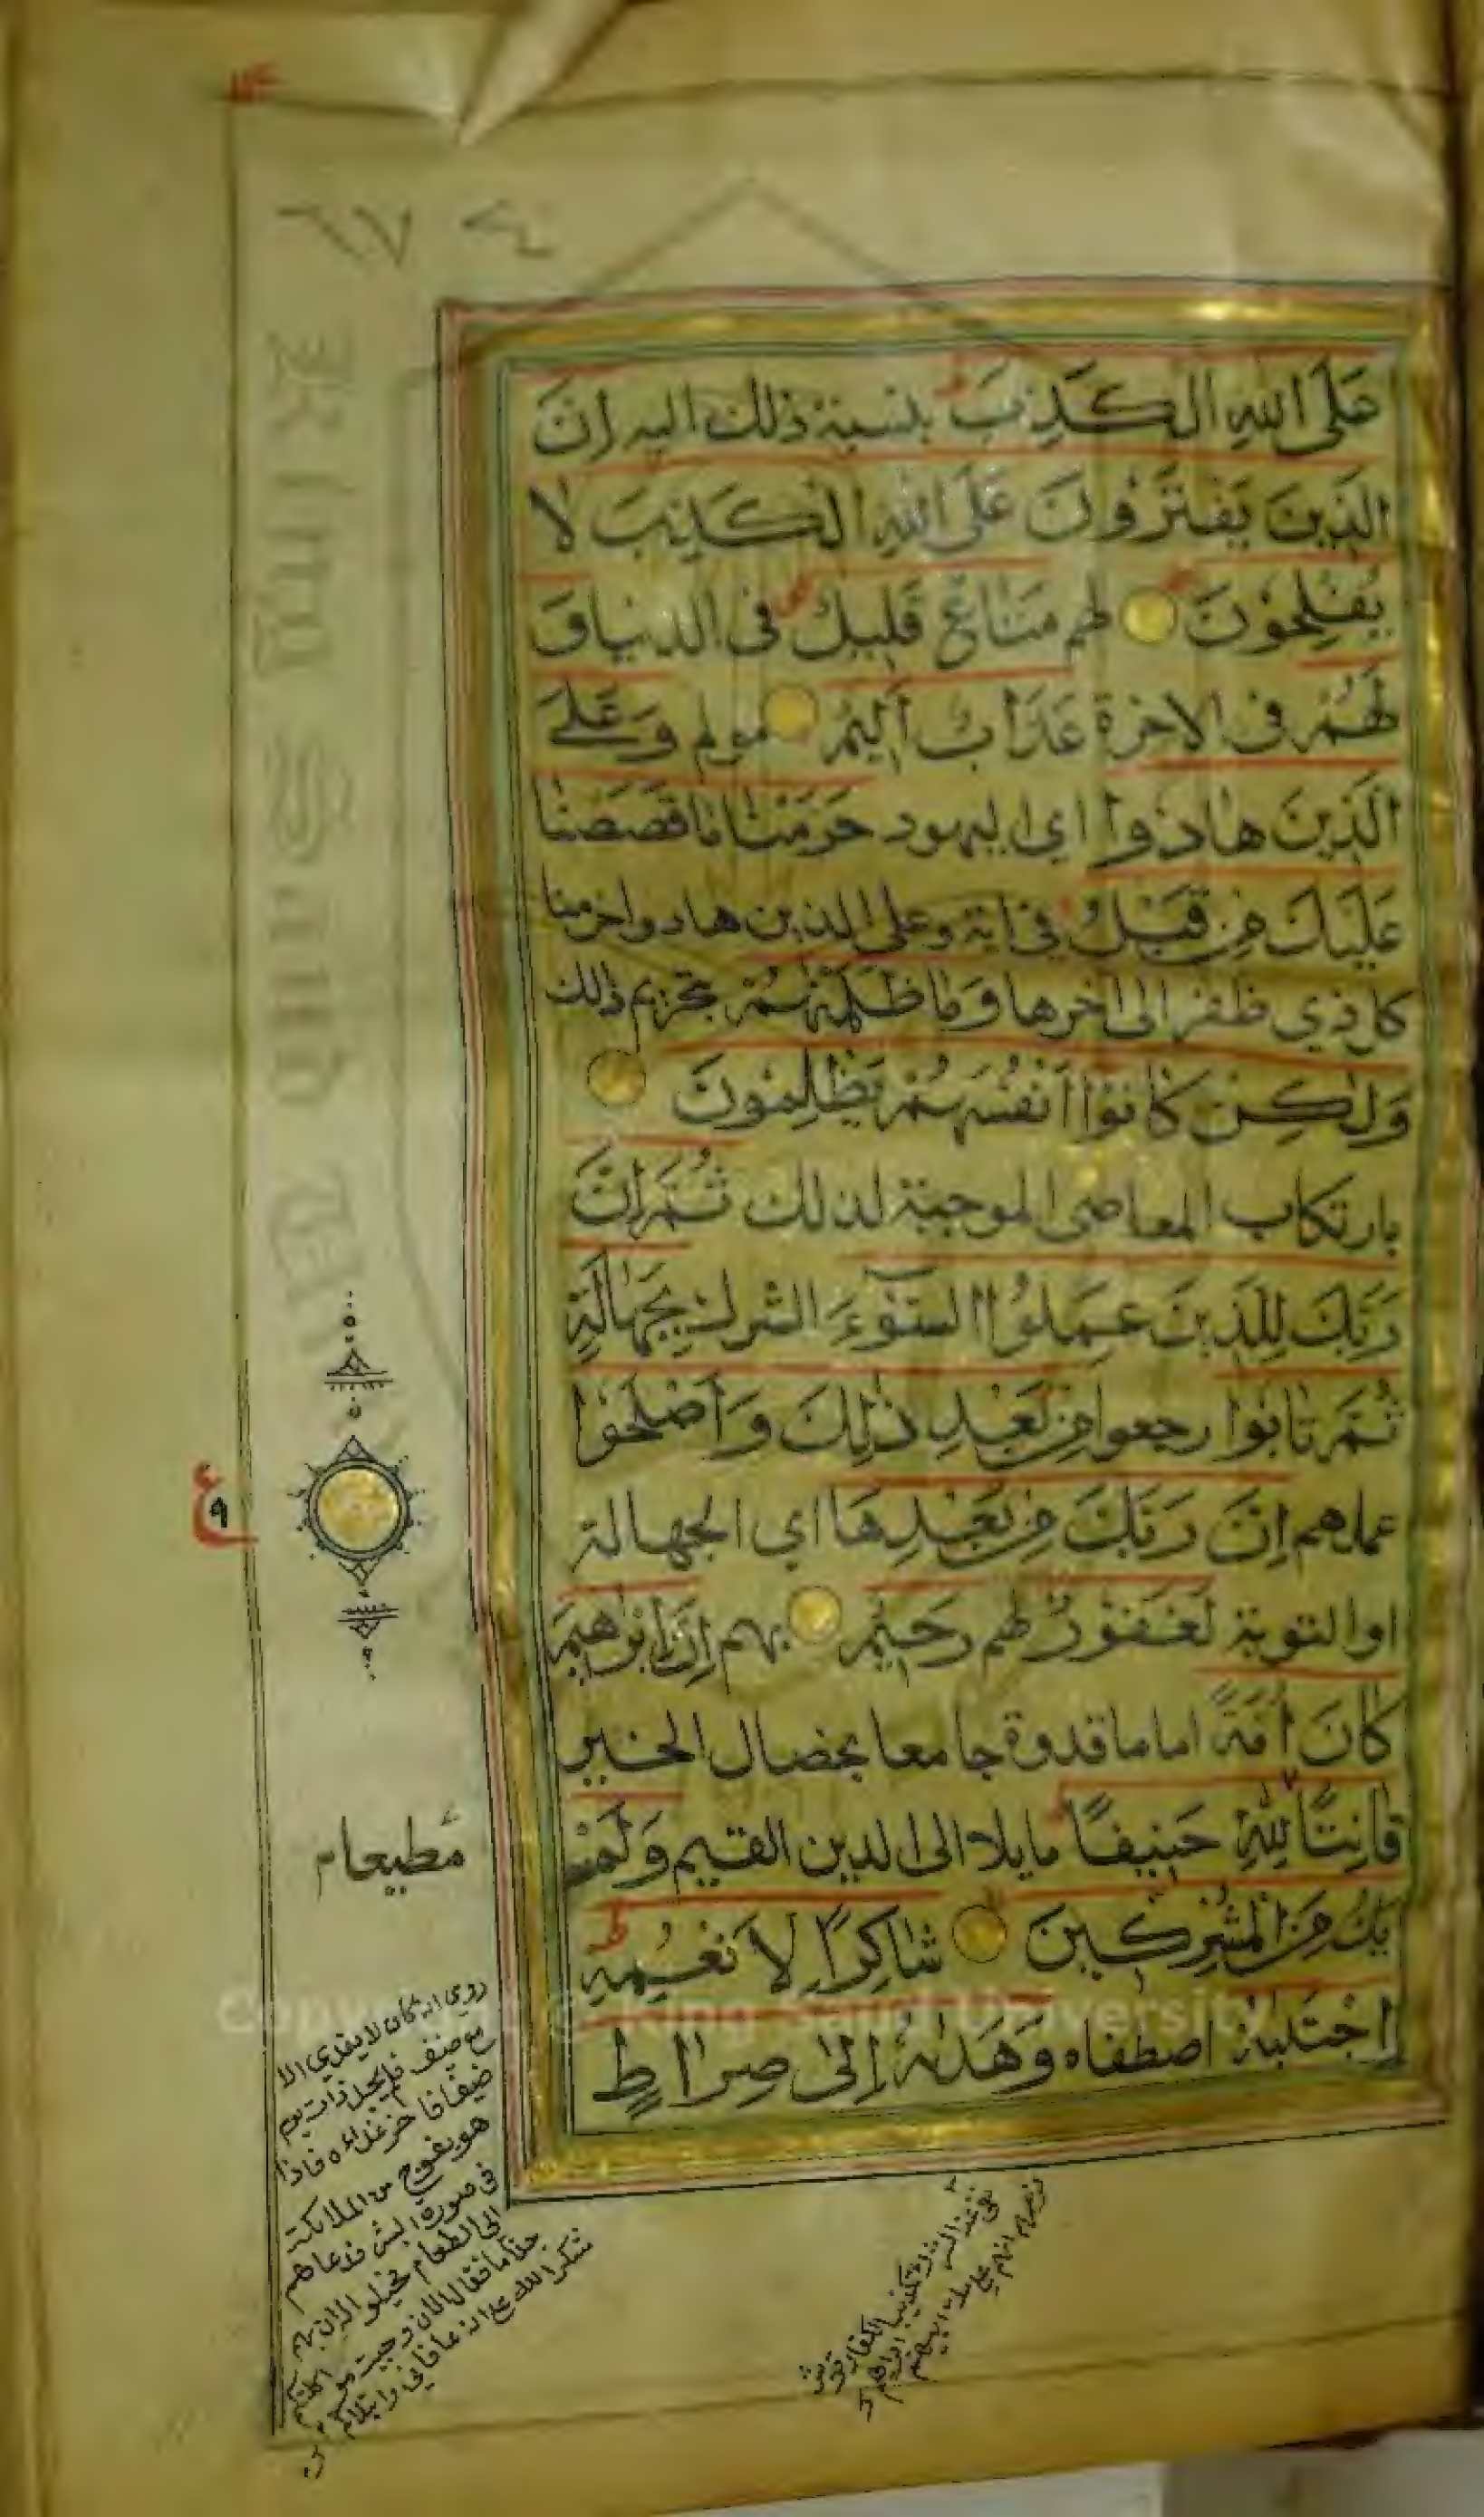 ٦٧٤
عَلَى اللهِ الْكَذِبَ بنسبة ذلك اليه اِنَّ
الَّذِينَ يَفْتَرُونَ عَلَى اللهِ الْكَذِبَ لَا
يُفْلِحُونَ لهم مَتَاعٌ قَلِيلٌ فى الدنيا وَ
لَهُمْ فى الاخرة عَذَابٌ اَلِيمٌ مولم وَعَلَى
الَّذِينَ هَادُوا اي اليهود حَرَّمْنَا مَا قَصَصْنَا
عَلَيْكَ مِنْ قَبْلُ في اية وعلى الذين هادوا حرمنا
كل ذي ظفر الى اخرها وَمَا ظَلَمْنٰهُمْ بتحريم ذلك
وَلٰكِنْ كَانُوا اَنْفُسَهُمْ يَظْلِمُونَ
بارتكاب المعاصى الموجبة لذلك ثُمَّ اِنَّ
رَبَّكَ لِلَّذِينَ عَمِلُوا السُّوءَ الشرك بِجَهَالَةٍ
ثُمَّ تَابُوا رجعوا مِنْ بَعْدِ ذٰلِكَ وَاَصْلَحُوا
عملهم اِنَّ رَبَّكَ مِنْ بَعْدِهَا اي الجهالة
او التوبة لَغَفُورٌ لهم رَحِيمٌ بهم اِنَّ اِبْرٰهِيمَ
كَانَ اُمَّةً اماما قدوة جامعا بخصال الخير
قَانِتًا لِلّٰهِ حَنِيفًا مايلا الى الدين القيم وَلَمْ
يَكُ مِنَ الْمُشْرِكِينَ شَاكِرًا لِاَنْعُمِهِ
اِجْتَبٰهُ اصطفاه وَهَدٰهُ اِلٰى صِرَاطٍ
ع
٩
مطيعا
روي انه كان لا يتغدى الا
مع ضيف فلم يجد ذات يوم
ضيفا فاخر غداءه فاذا
هو بفوج من الملائكة
في صورة البشر فدعاهم
الى الطعام فخيلوا له ان بهم
جذاما فقال الان وجبت مواكلتكم
شكرا لله على انه عافاني وابتلاكم
Copyright © King Saud University
King Saud